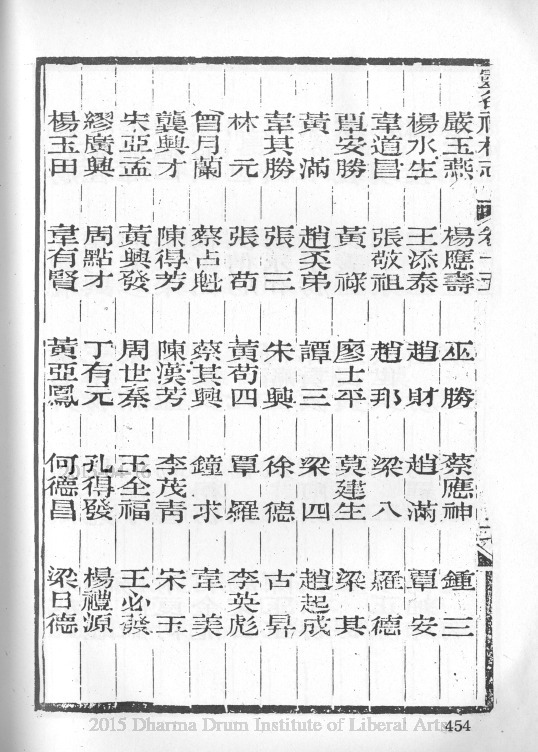 靈谷禪林志 卷十五
嚴玉燕 楊應壽 巫勝 蔡應神 鍾三
楊水生 王添泰 趙財 趙滿 覃安
韋道昌 張敬祖 趙那 梁八 羅德
覃安勝 黃祿 廖士平 莫建生 梁其
黃滿 趙奀弟 譚三 梁四 趙起成
韋其勝 張三 朱興 徐德 古昇
林元 張苟 黃苟四 覃羅 李英彪
曾月蘭 蔡占魁 蔡其興 鐘求 韋美
龔興才 陳得芳 陳漢芳 李茂青 宋玉
宋亞孟 黃興發 周世秦 王全福 王必發
繆廣興 周點才 丁有元 孔得發 楊禮源
楊玉田 韋有賢 黃亞鳳 何德昌 梁日德
454
2015 Dharma Drum Institute of Liberal Arts